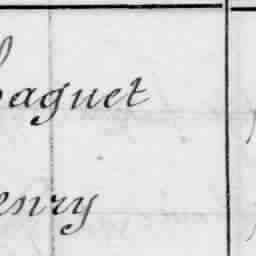 baguet
enry